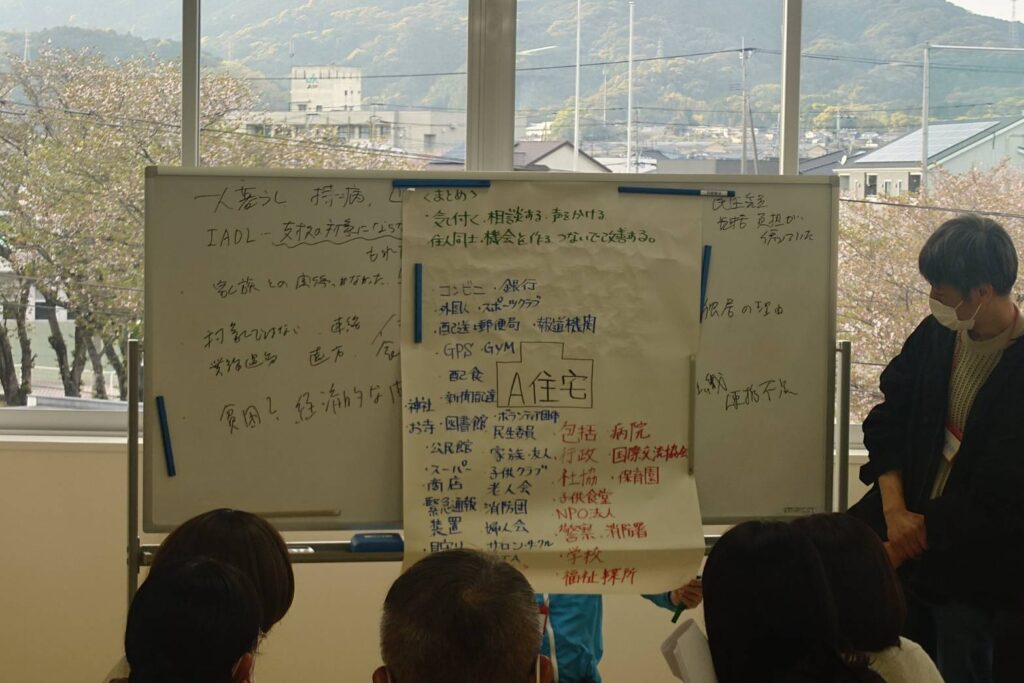 一人暮らし 持病、
IADL…支援の対象になら
もれ
家族との関係、かなめた、
対象ではない 連絡
貧困？経済的な
くまとめ>
・気付く、相談する、声をかける
住人同士、機会を作る、つないで改善する。
・コンビニ ・銀行
・外国人 ・スポーツクラブ
・配送・郵便局 ・報道機関
・GPS ・GYM
・配食
・新聞配達
A住宅
・神社
お寺 ・図書館
・ボランティア団体
民生委員
・公民館 ・家族・友人
・スーパー 子供クラブ
商店 老人会
緊急通報 消防団
装置 婦人会
見守り サロン・サークル
PTA
・包括 ・病院
・行政 ・国際交流協会
・社協 ・保育園
・子供食堂
NPO法人
・警察 ・消防署
・学校
・福祉事務所
民生委員
包括 負担が
独居の理由
連携不足